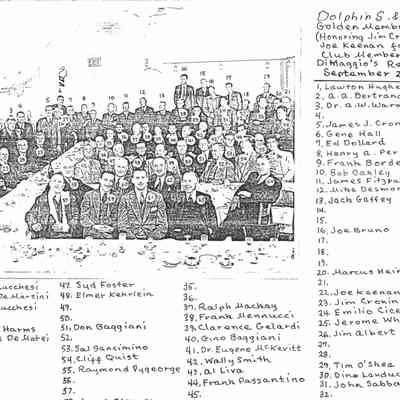 Dolphin S. &
Golden Membe
(Honoring Jim Cr
Joe Keenan fo
Club Member
DiMaggio's Re
September 2
1. Lawton Hughe
2. A. A. Bertran
3. Dr. A. W. War
4.
5. James J. Cron
6. Gene Hall
7. Ed Dollard
8. Henry A. Per
9. Frank Borde
10. Bob Oakley
11. James Fitzpa
12. Mike Desmo
13. Jack Gaffey
14.
15.
16. Joe Bruno
17.
18.
19.
20. Marcus Hein
21.
22. Joe Keenan
23. Jim Cronin
24. Emilio Cice
25. Jerome Wh
26. Jim Albert
27.
28.
29. Tim O'Shea
30. Dino Landuc
31. John Sabba
32.
ucchesi
De Martini
ucchesi
Harms
De Matei
47. Syd Foster
48. Elmer Kenrlein
49.
50.
51. Don Baggiani
52.
53. Sal Sancimino
54. Cliff Quist
55. Raymond Pygeorge
56.
57.
35.
36.
37. Ralph Mackay
38. Frank Mennucci
39. Clarence Gelardi
40. Gino Baggiani
41. Dr. Eugene McKevitt
42. Wally Smith
43. Al Liva
44. Frank Passantino
45.